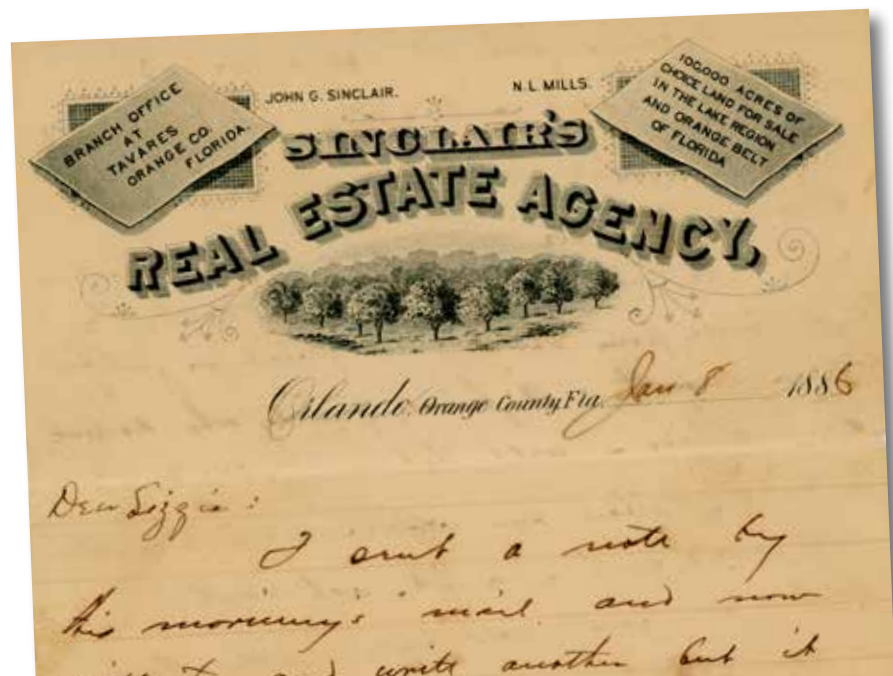 BRANCH OFFICE
AT
TAVARES
ORANGE CO.
FLORIDA.
JOHN G. SINCLAIR.
N. L. MILLS.
100,000 ACRES OF
CHOICE LAND FOR SALE
IN THE LAKE REGION
AND ORANGE BELT
OF FLORIDA
SINCLAIR'S
REAL ESTATE AGENCY,
Orlando, Orange County, Fla. Jan 8 1886
Dear Lizzie:
I sent a note by
this morning's mail and now
and write another but it